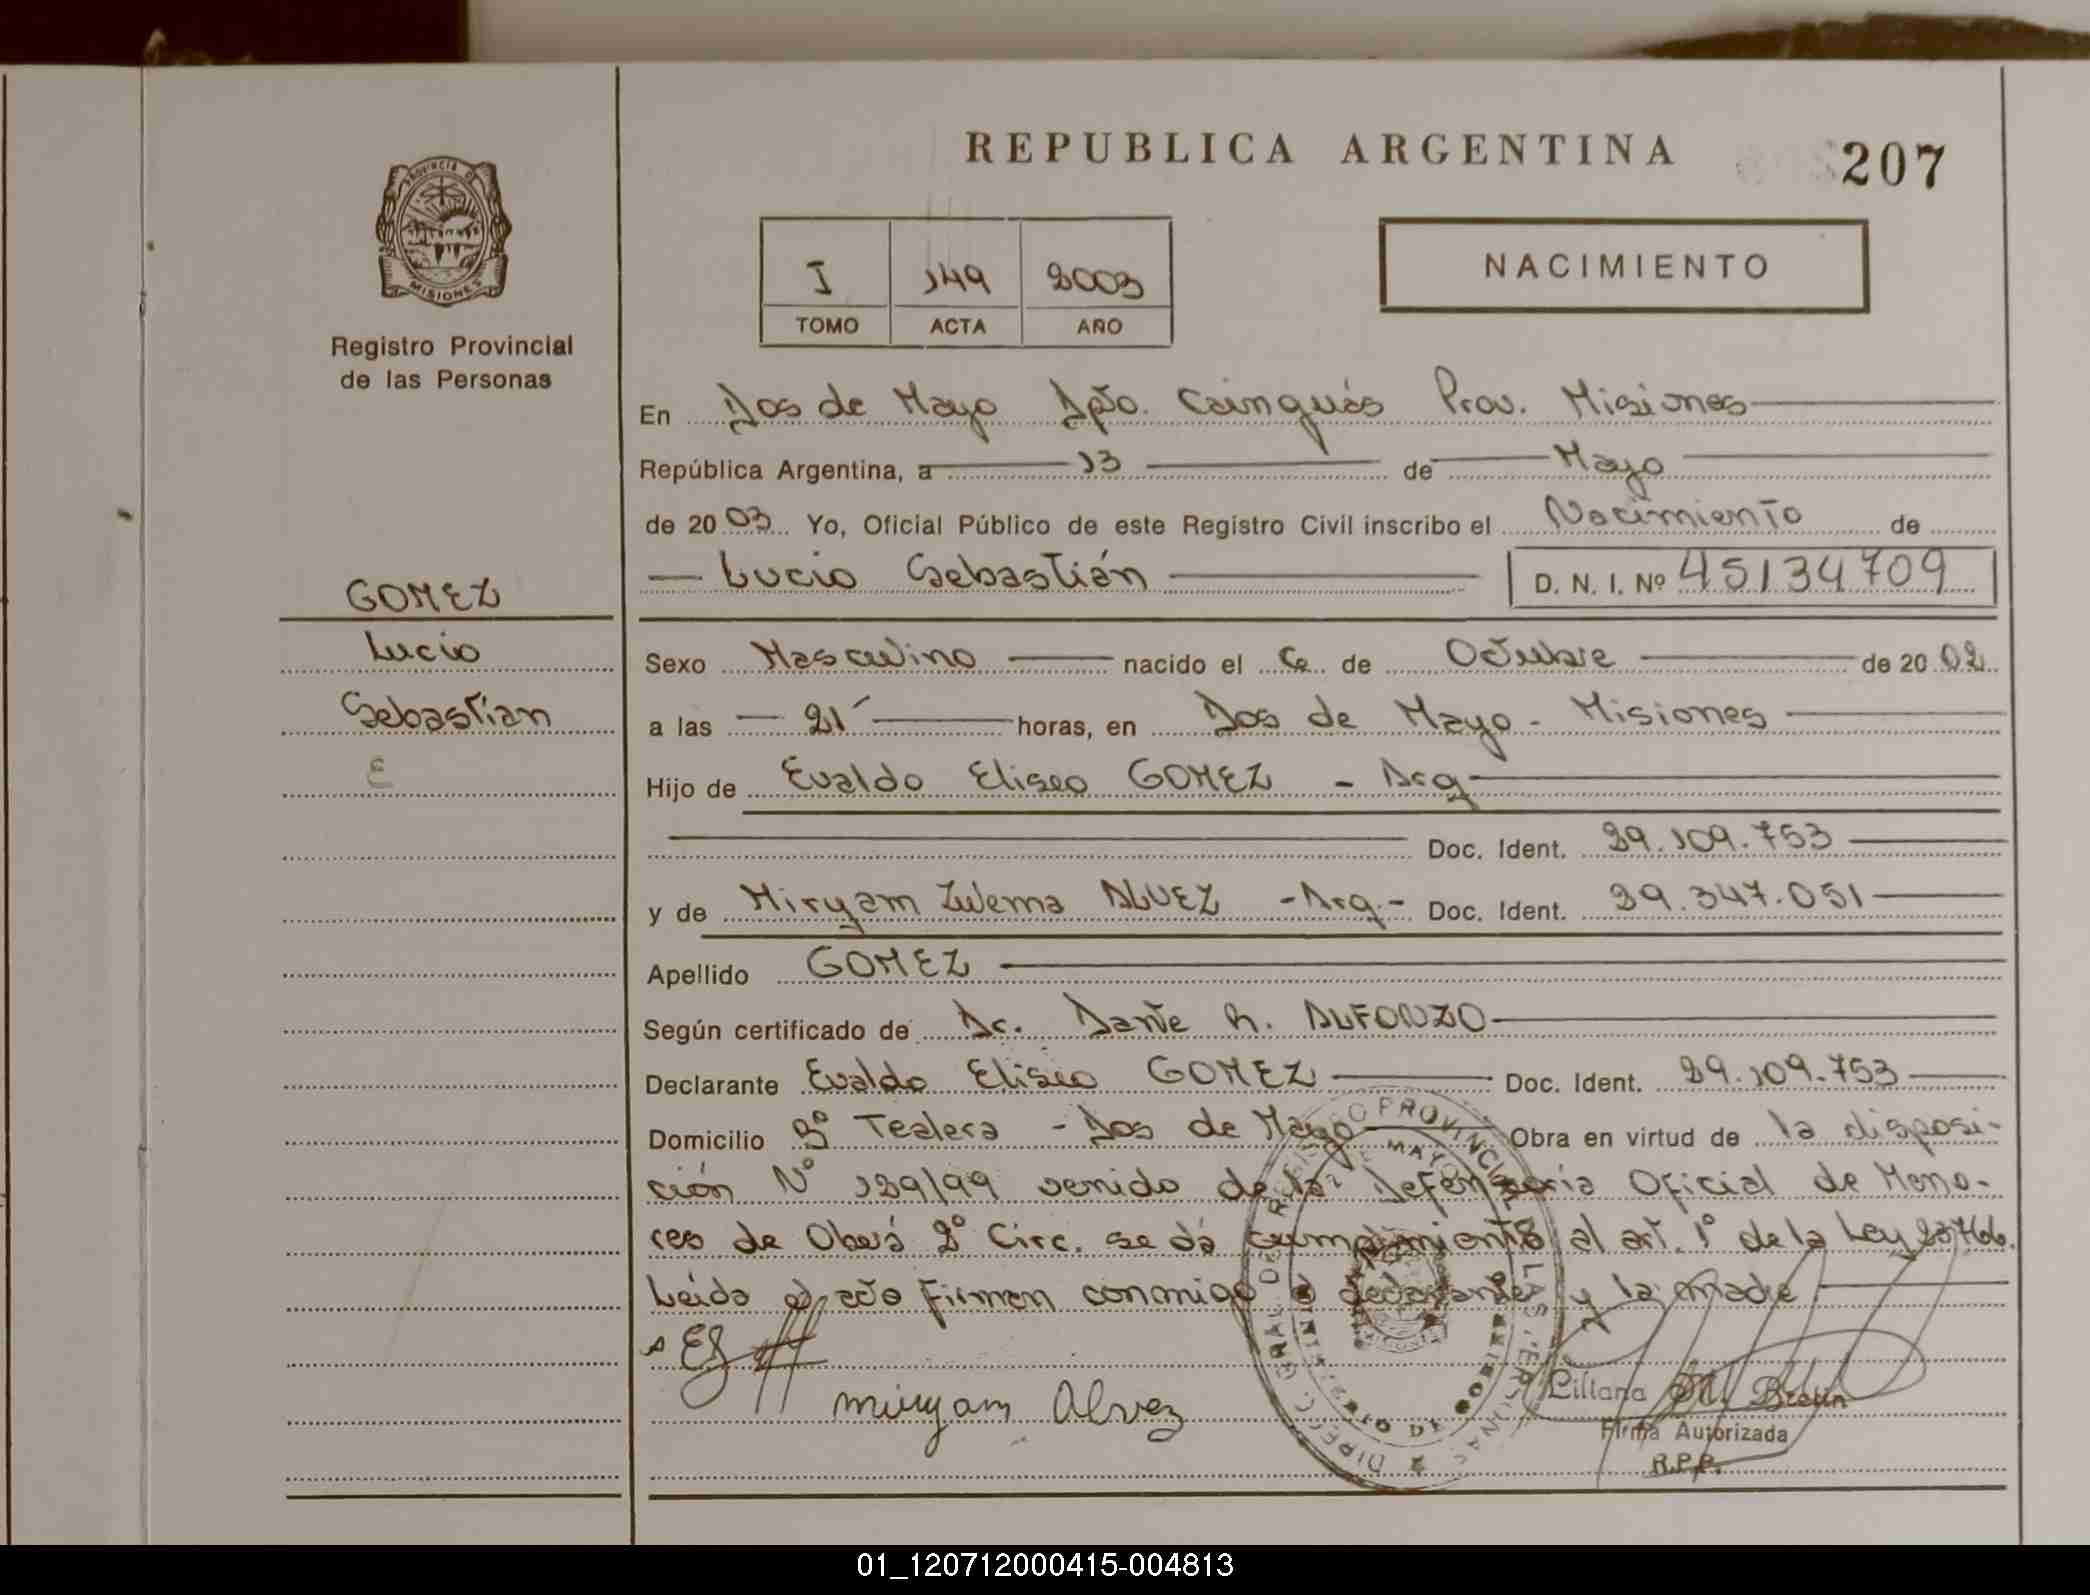 REPUBLICA ARGENTINA
207
PROVINCIA DE
MISIONES
Registro Provincial
de las Personas
I 149 2003
TOMO ACTA AÑO
NACIMIENTO
En Dos de Mayo Dpto. Cainguás Prov. Misiones
República Argentina, a 13 de Mayo
de 2003 Yo, Oficial Público de este Registro Civil inscribo el Nacimiento de
Lucio Sebastián D. N. I. Nº 45134709
GOMEZ
Lucio
Sebastian
E
Sexo Masculino nacido el de Octubre de 2002
a las 21 horas, en Dos de Mayo - Misiones
Hijo de Evaldo Eliseo GOMEZ - Arg
Doc. Ident. 29.109.753
y de Miryam Zulema ALVEZ - Arg - Doc. Ident. 29.347.051
Apellido GOMEZ
Según certificado de Dr. Dante R. ALFONZO
Declarante Evaldo Eliseo GOMEZ Doc. Ident. 29.109.753
Domicilio Bº Tealera - Dos de Mayo Obra en virtud de la disposi-
ción Nº 129/99 venido de la Defensoria Oficial de Meno-
res de Oberá 2º Circ. se dá cumplimiento al art. 1º de la Ley 23766.
Leída el acto firman conmigo el declarante y la madre
miryam Alvez
Liliana M. Braun
Firma Autorizada
R.P.P.
01_120712000415-004813